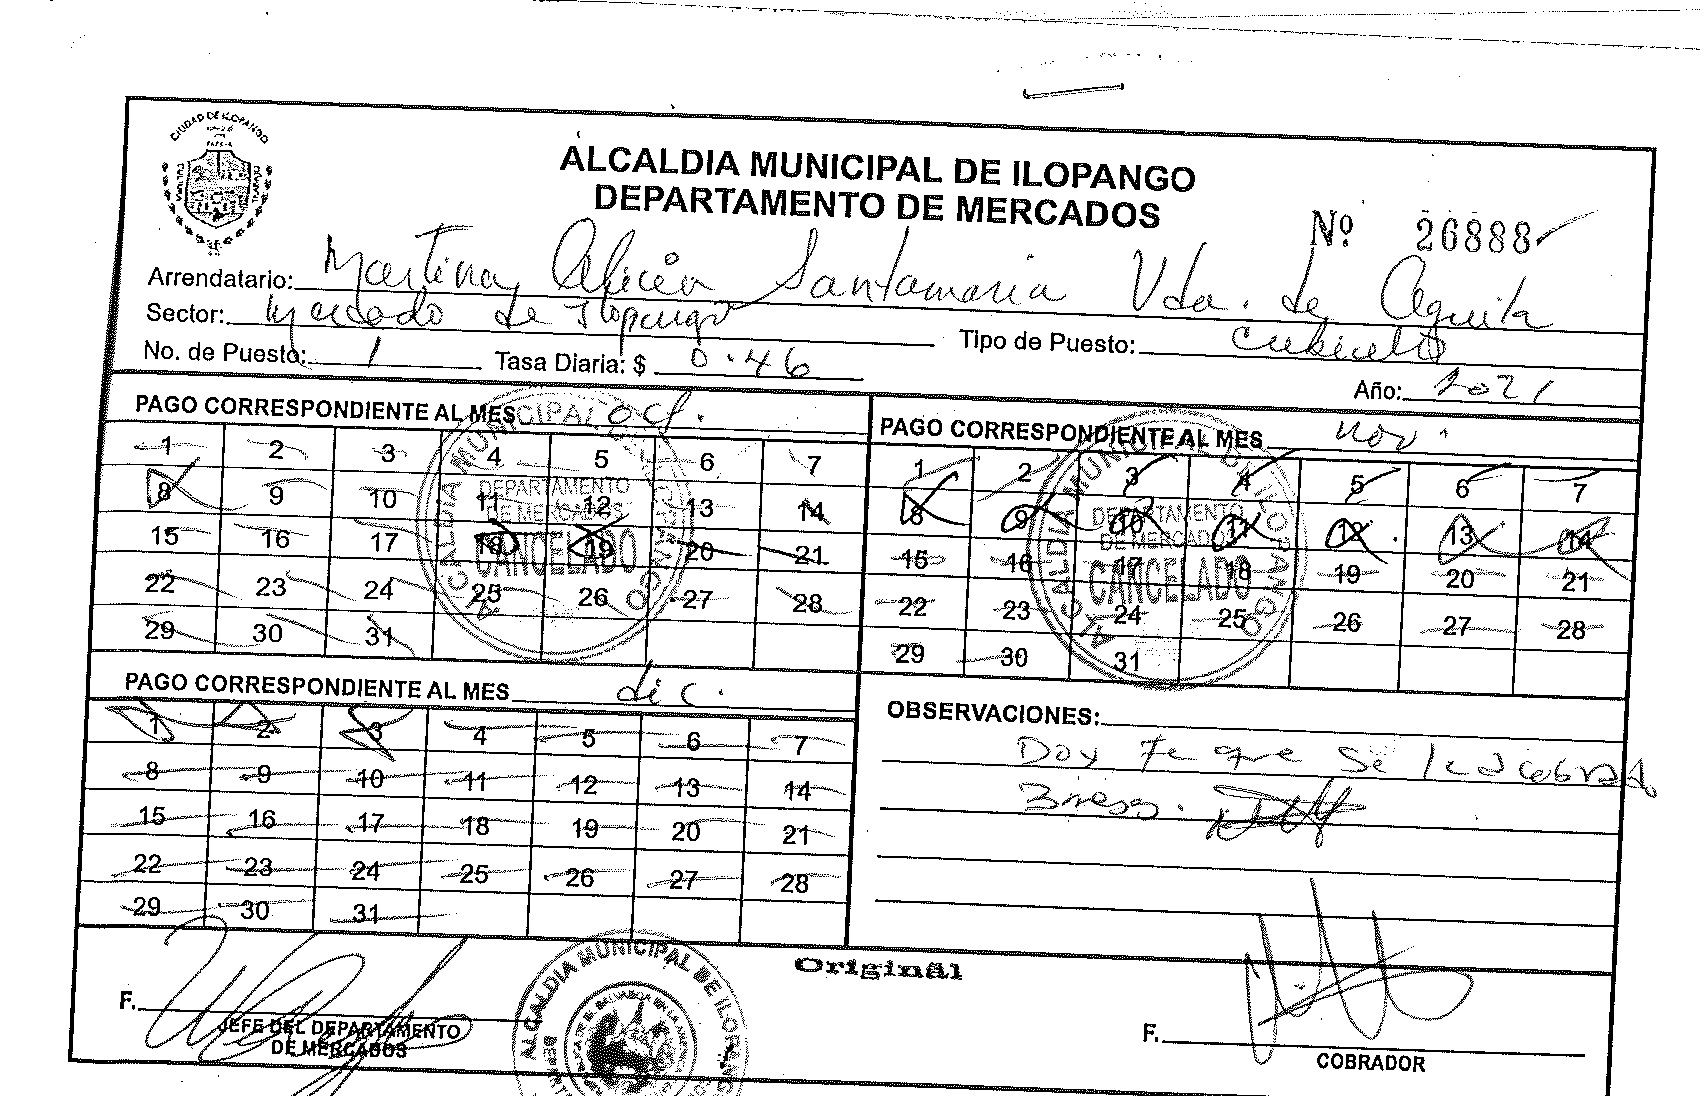 CIUDAD DE ILOPANGO
ALCALDIA MUNICIPAL DE ILOPANGO
DEPARTAMENTO DE MERCADOS
Nº 26888
Arrendatario: Martina Alicia Santamaria Vda. de Aguila
Sector: Mercado de Ilopango
Tipo de Puesto: cubiculo
No. de Puesto: 1 Tasa Diaria: $ 0.46
Año: 2021
PAGO CORRESPONDIENTE AL MES oct.
1 2 3 4 5 6 7
8 9 10 11 12 13 14
15 16 17 18 19 20 21
22 23 24 25 26 27 28
29 30 31
ALCALDIA MUNICIPAL DE ILOPANGO
DEPARTAMENTO
DE MERCADOS
CANCELADO
PAGO CORRESPONDIENTE AL MES nov.
1 2 3 4 5 6 7
8 9 10 11 12 13 14
15 16 17 18 19 20 21
22 23 24 25 26 27 28
29 30 31
ALCALDIA MUNICIPAL DE ILOPANGO
DEPARTAMENTO
DE MERCADOS
CANCELADO
PAGO CORRESPONDIENTE AL MES dic.
1 2 3 4 5 6 7
8 9 10 11 12 13 14
15 16 17 18 19 20 21
22 23 24 25 26 27 28
29 30 31
OBSERVACIONES:
Doy Fe que se le a cobrado
3 meses.
Original
F.
JEFE DEL DEPARTAMENTO
DE MERCADOS
ALCALDIA MUNICIPAL DE ILOPANGO
F.
COBRADOR